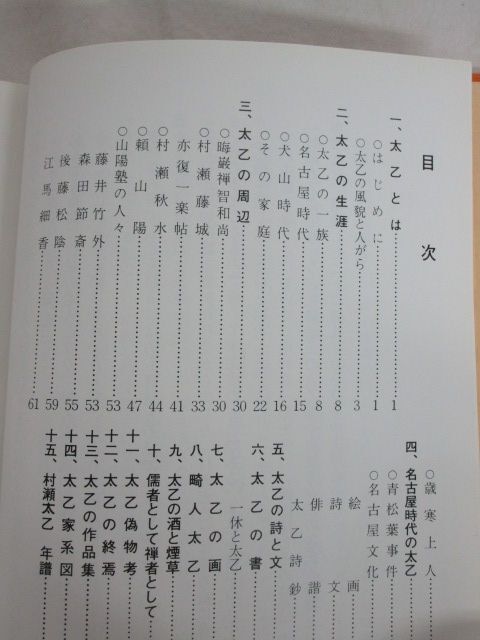 目次
一、太乙とは 1
○はじめに 1
○太乙の風貌と人がら 3
二、太乙の生涯 8
○太乙の一族 8
○名古屋時代 15
○犬山時代 16
○その家庭 22
三、太乙の周辺 30
○晦巌禅智和尚 30
○村瀬藤城 33
亦復一楽帖 41
○村瀬秋水 44
○頼山陽 47
○山陽塾の人々 53
藤井竹外 53
森田節斎 55
後藤松陰 59
江馬細香 61
○歳寒上人
四、名古屋時代の太乙
○青松葉事件
○名古屋文化
絵画
詩文
俳諧
太乙詩鈔
五、太乙の詩と文
六、太乙の書
一休と太乙
七、太乙の画
八、畸人太乙
九、太乙の酒と煙草
十、儒者として禅者として
十一、太乙偽物考
十二、太乙の終焉
十三、太乙の作品集
十四、太乙家系図
十五、村瀬太乙年譜